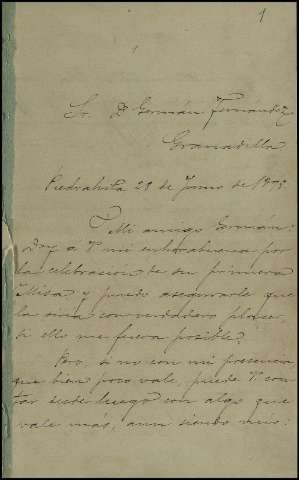 1
Sr. D. Germán Fernández
Granadilla
Piedrahita 28 de Junio de 1895.
Mi amigo Germán:
Doy a V. mi enhorabuena por
la celebracion de su primera
Misa, y puedo asegurarle que
la con verdadero placer,
si ello me fuera posible.
Pero, si no con mi presencia,
que bien poco vale, puede V. con-
tar desde luego con algo que
vale más, aun siendo mio: